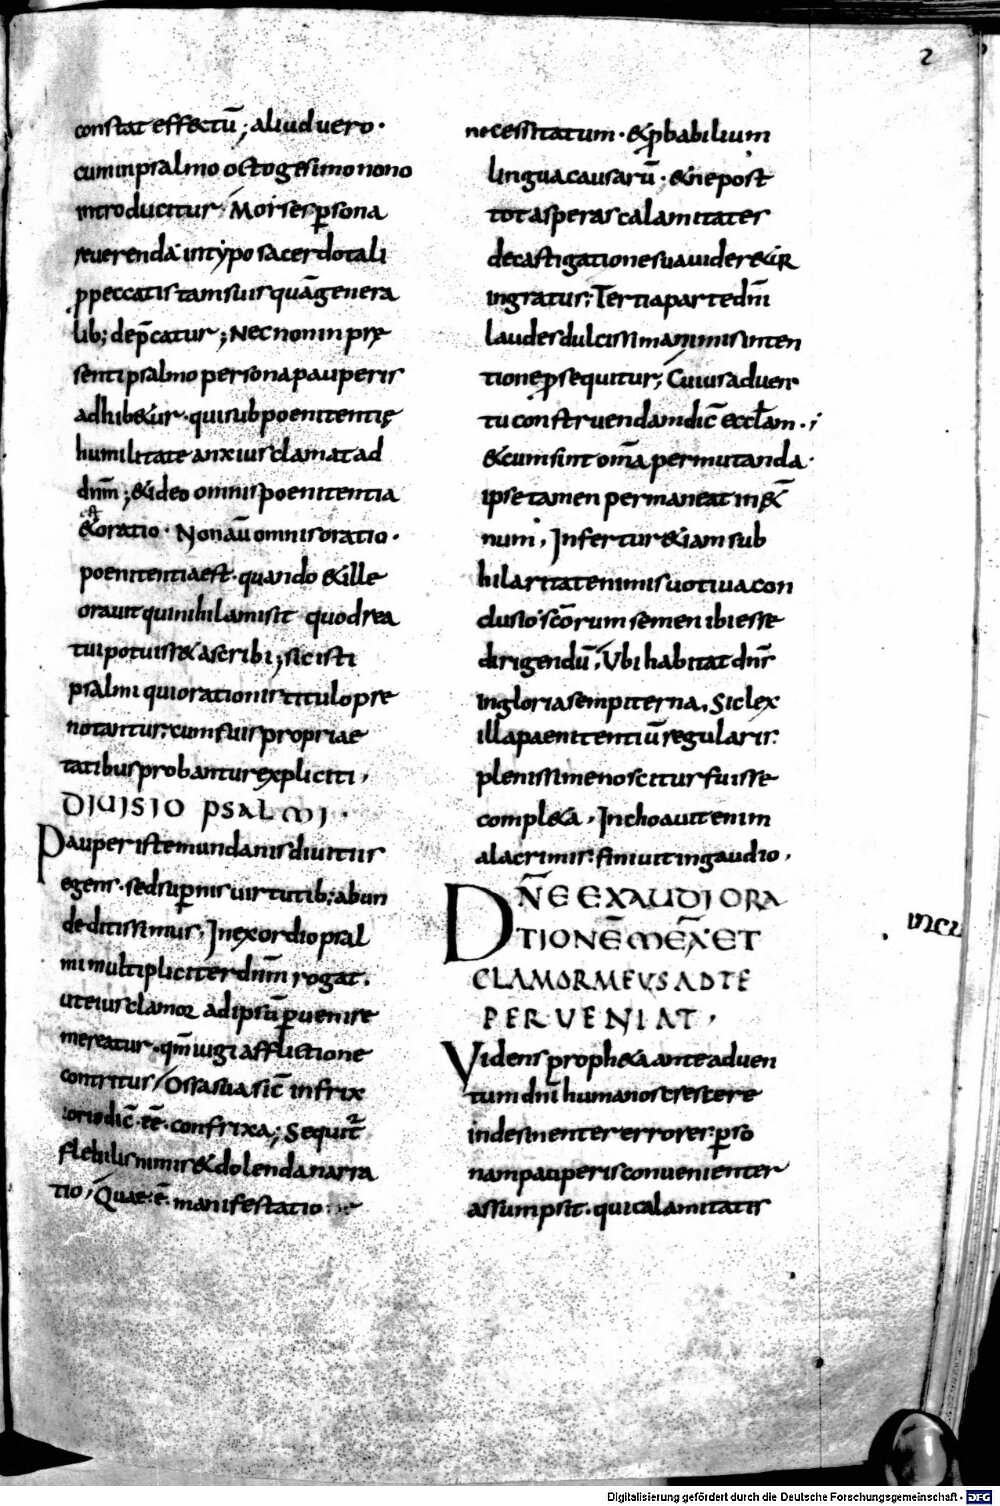 2
constat effectū; aliud uero·
cum in psalmo octogesimo nono
introducitur; Moises ꝑsona
reuerenda in typo sacerdotali
ꝓ peccatis tam suis quā genera
lib; dep̄catur; Nec non in prę
senti psalmo persona pauperis
adhib&ur· qui sub poenitentię
humilitate anxius clamat ad
dn̄m; & ideo omnis poenitentia
est
& oratio· Non aū omnis oratio·
poenitentia est· quando & ille
orauit qui nihil amisit quod rea
tui potuiss& ascribi; sic isti
psalmi qui orationis titulo pre
notantur; cum suis propriae
tatibus probantur expliciti,
DIUISIO PSALMI·
Pauper iste mundanis diuitiis
egens· sed suꝑnis uirtutib; abun
deditissimus, In exordio psal
mi multipliciter dn̄m rogat·
ut eius clamor ad ipsū ꝑuenire
mereatur· qm̄ iugi afflictione
contritus, Ossa sua sic̄ in frix
orio dic̄ eē confrixa; Sequit̄
flebilis nimis & dolenda narra
tio, Quae ē manifestatio
necessitatum· & ꝓbabilium
lingua causarū· & ne post
tot asperas calamitates
de castigatione sua uider&ur
ingratus; Tertia parte dn̄i
laudes dulcissima nimis inten
tione ꝓsequitur; Cuius aduen
tu construendam dic̄ eccłam·;
& cum sint om̄a permutanda·
ipse tamen permaneat in &̄
num, Infertur & iam sub
hilaritate nimis uotiua con
clusio sc̄orum semen ibi esse
dirigendū, Ubi habitat dn̄s
in gloria sempiterna, Sic lex
illa paenitentiū regularis
plenissime noscitur fuisse
compl&a, Inchoauit enim
a lacrimis; finiuit in gaudio,
DN̄E EXAUDI ORA
TIONĒ MEĀ ET
CLAMOR MEUS AD TE
PERUENIAT,
Videns proph&a ante aduen
tum dn̄i humanos crescere
indesinenter errores; ꝑso
nam pauperis conuenienter
assumpsit· qui calamitatis
Digitalisierung gefördert durch die Deutsche Forschungsgemeinschaft - DFG